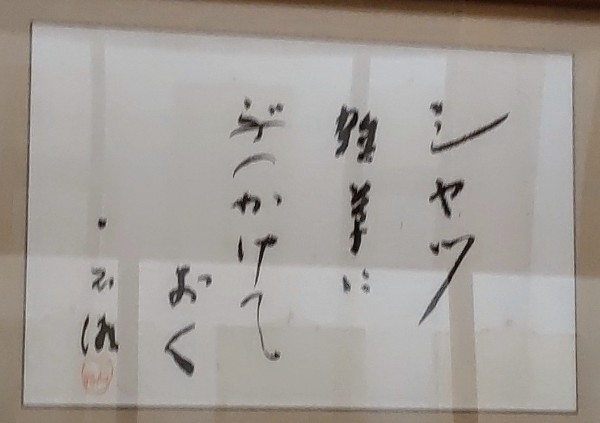 シヤツ
雑草に
ぶつかけて
おく
一石路